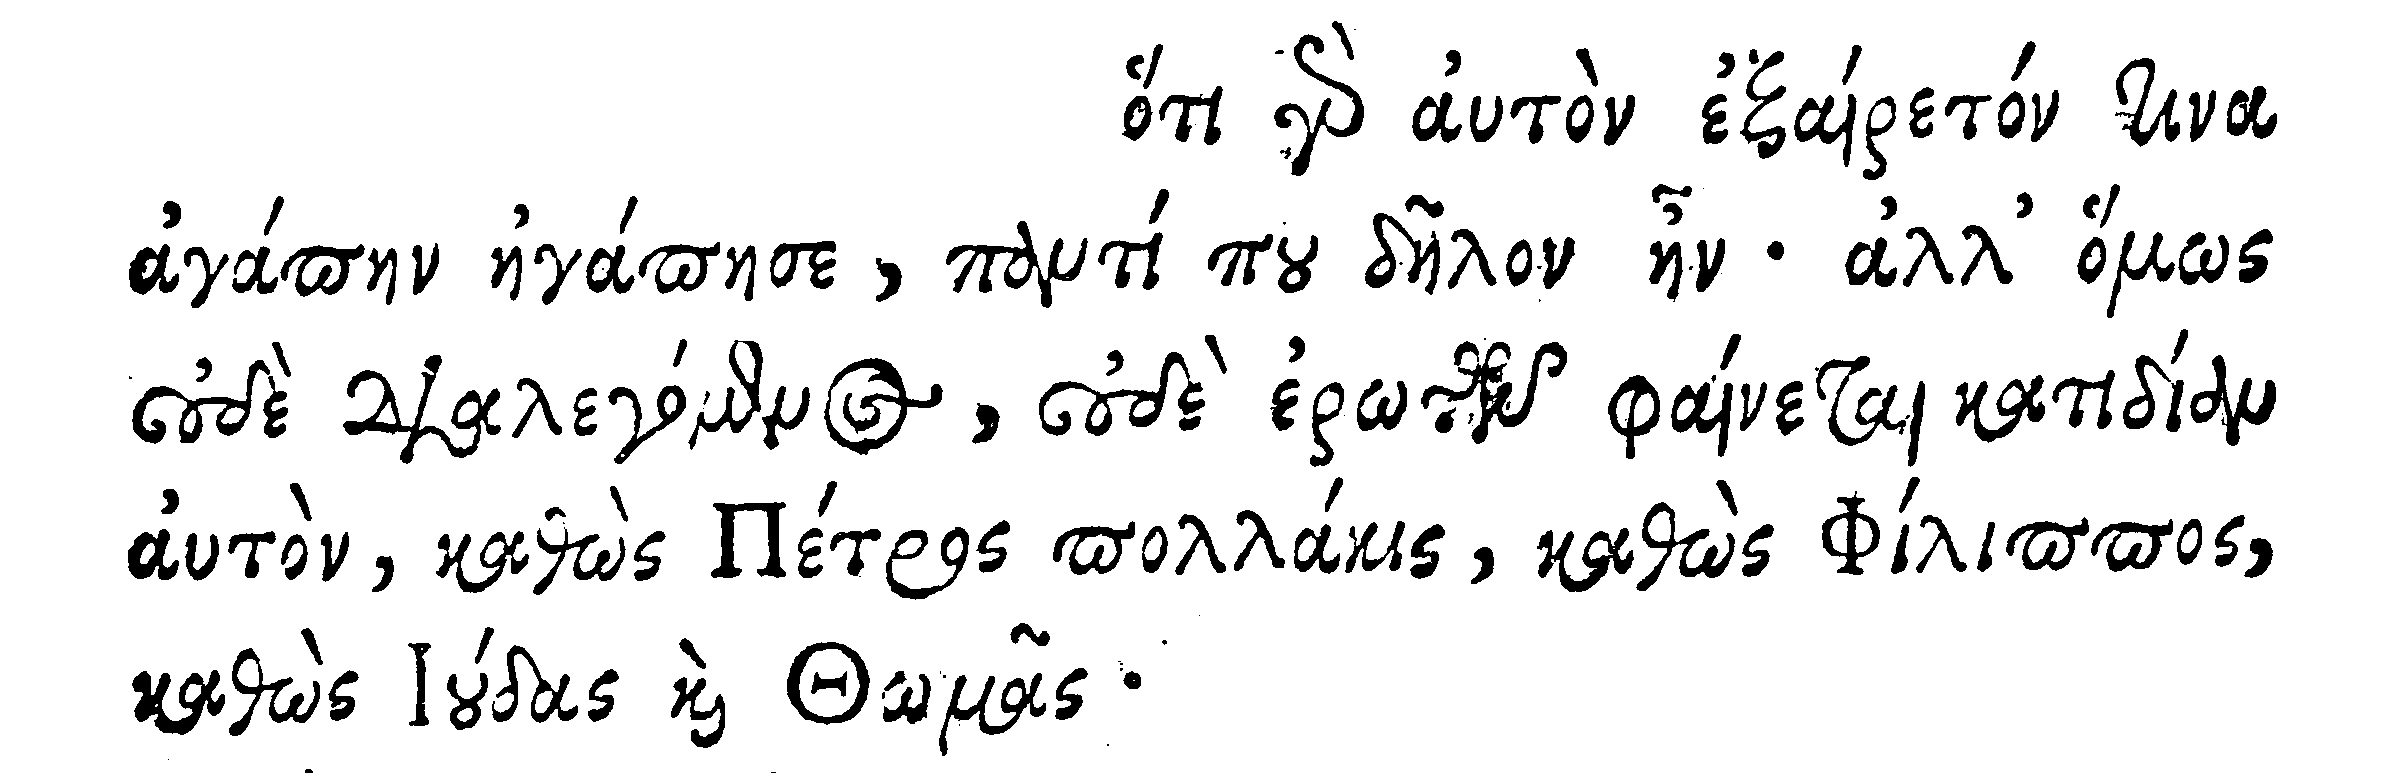 ὅτι γὰρ αὐτὸν ἐξαίρετόν τινα
ἀγάπην ἠγάπησε, παντί που δῆλον ἦν· ἀλλ' ὅμως
οὐδὲ διαλεγόμενος, οὐδὲ ἐρωτῶν φαίνεται κατιδίαν
αὐτὸν, καθὼς Πέτρος πολλάκις, καθὼς Φίλιππος,
καθὼς Ιούδας καὶ Θωμᾶς·